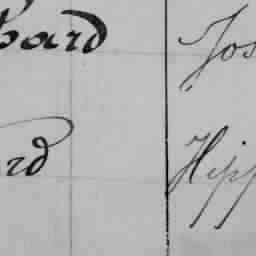 bard Jos
rd Hipp